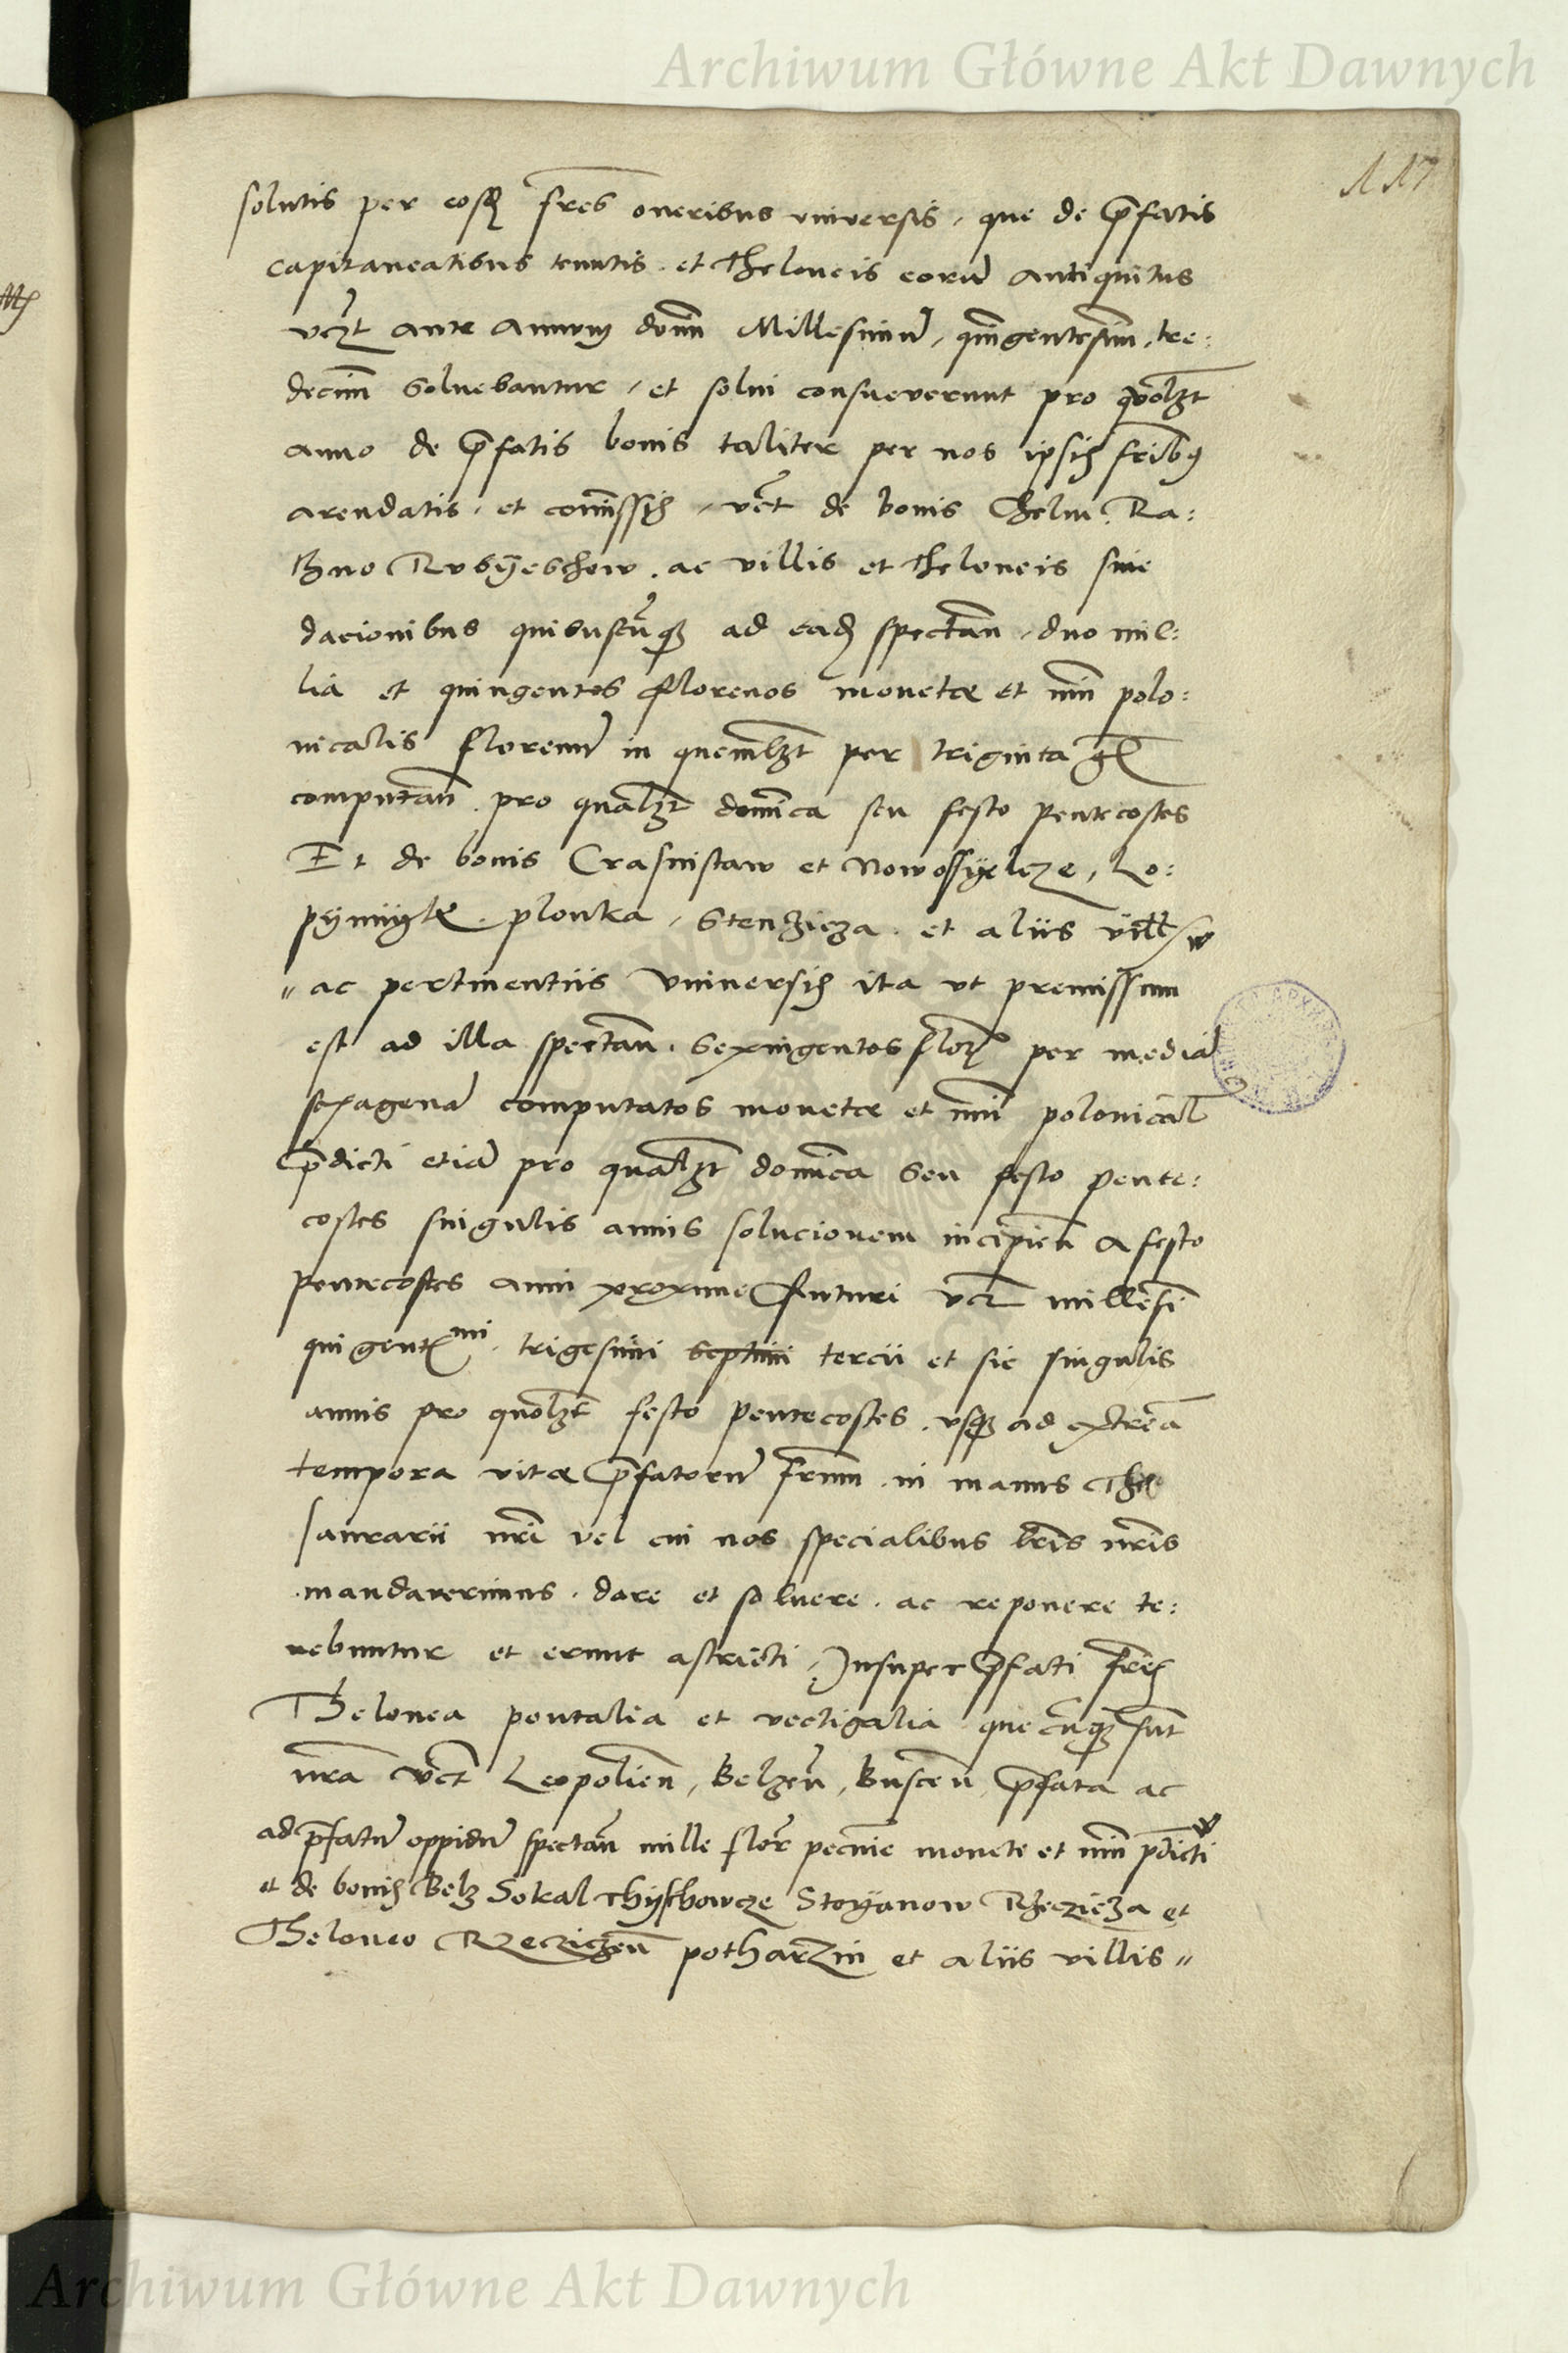 Archiwum Główne Akt Dawnych
117
solutis per eosd fres oneribus universis, que de prefatis
capitaneatibus tenutis et Theloneis eorum antiquitus
vczt ante annum domi Millesimum, quingentesim, tre:
decim solvebantur, et solvi consueverunt pro quolzt
anno de prefatis bonis taliter per nos ipsis fribus
arendatis, et comissis, vczt de bonis Chelm, Ra:
thno Rubyeschow, ac villis et Theloneis sive
dacionibus quibuscunque ad ead spectan, duo mil:
lia et quingentos florenos monetæ et nui polo:
nicalis florenum in quemlzt per triginta gr
computan pro qualzt domica seu festo pentecostes
Et de bonis Crasnistaw et Nowossyelcze, Lo:
pyennyk, plonka, Stenzicza et aliis vill
ac pertinentiis Universis ita ut premissum
est ad illa spectan, sexingentos flor per mediam
sexagenam computatos monetæ et nui polonical
predicti etiam pro qualzt domica seu festo pente:
costes singulis annis solucionem incipien a festo
pentecostes anni proxime futuri vcz millesi
quigentmi trigesimi septimi tercii et sic singulis
annis pro quolzt festo pentecostes, usque ad extrema
tempora vitæ prefatorum frum in manus The
saurarii nri vel cui nos specialibus lris nris
mandaverimus, dare et solvere, ac reponere te:
nebuntur et erunt astricti, Insuper prefati fres
Thelonea pontalia et vectigalia quecunque sunt
nra vczt Leopolien, Belzen, Buscen prefata ac
ad prefatum oppidum spectan mille flor pecunie monete et nui pdicti
et de bonis Belz Sokal Thyschowcze Stoyanow Rzeczicza et
Theloneo Rzeczicen potharzin et aliis villis
Archiwum Główne Akt Dawnych